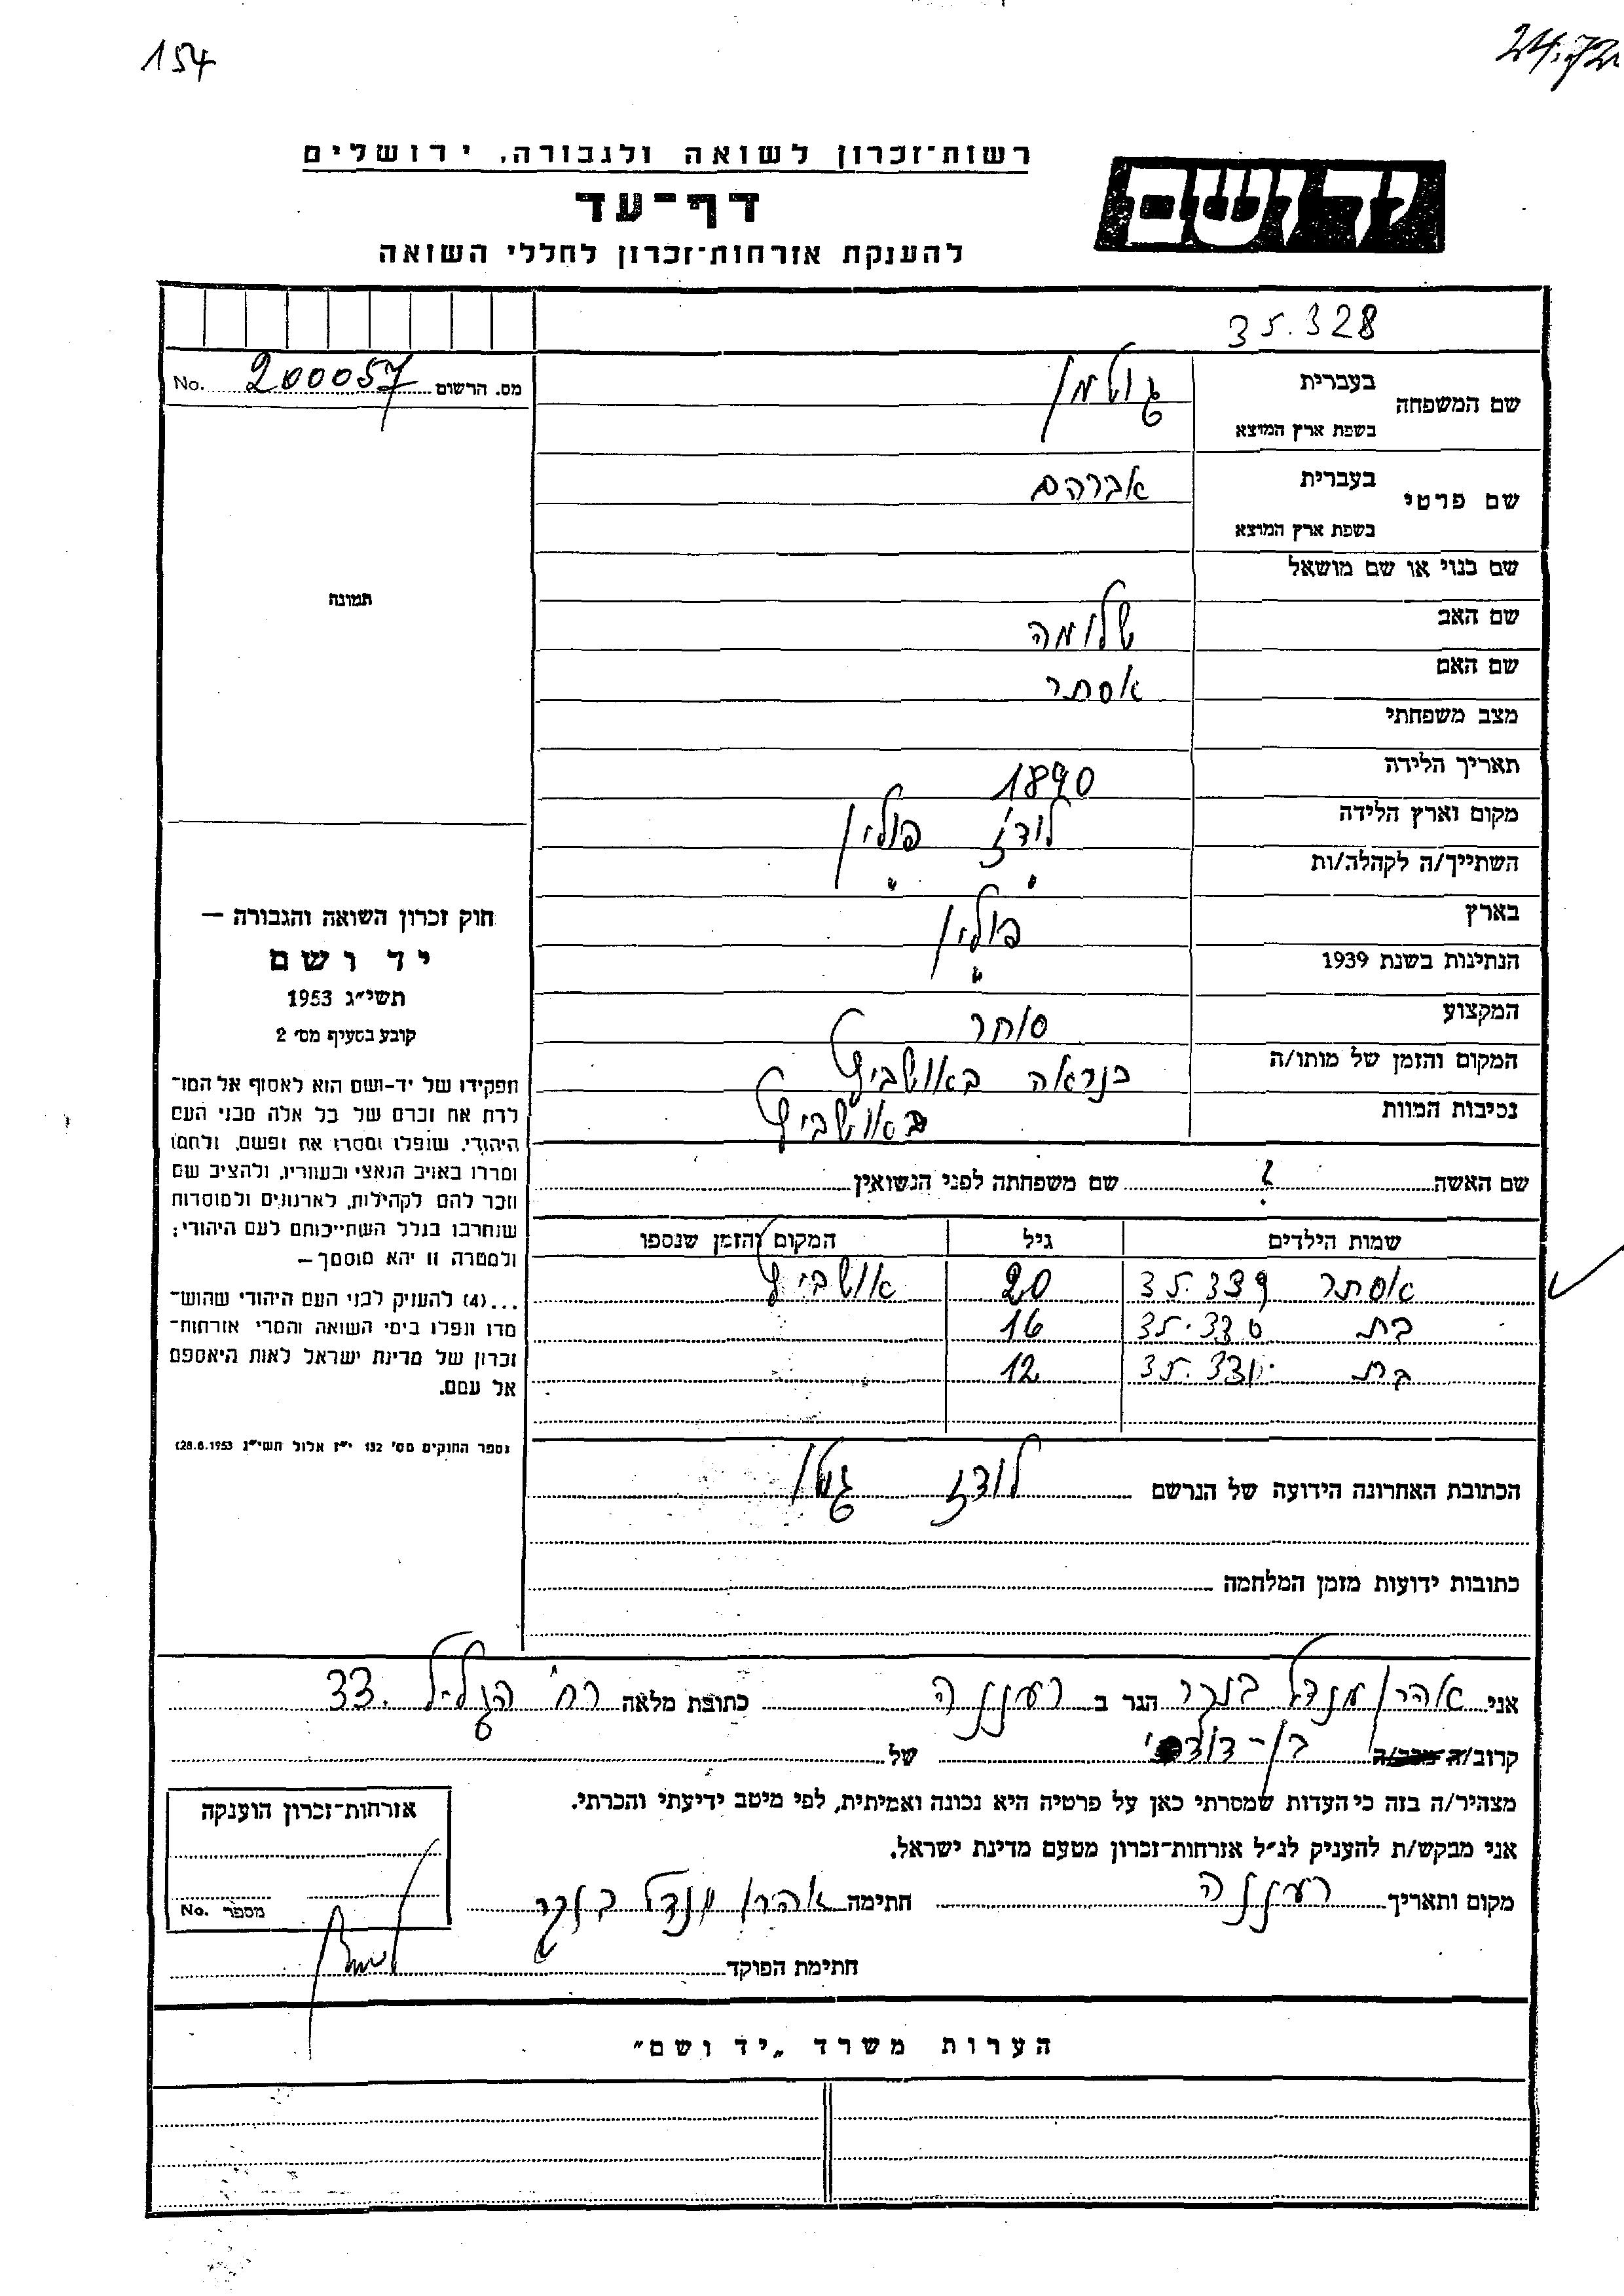 154
24.72
רשות־זכרון לשואה ולגבורה, ירושלים
יד ושם
דף־עד
להענקת אזרחות־זכרון לחללי השואה
35.328
מס. הרשום 200057 No.
שם המשפחה
בעברית גולמן
בשפת ארץ המוצא
שם פרטי
בעברית אברהם
בשפת ארץ המוצא
שם בנוי או שם מושאל
שם האב שלומה
שם האם אסתר
מצב משפחתי
תאריך הלידה 1890
מקום וארץ הלידה לודז פולין
השתייך/ה לקהלה/ות " "
בארץ פולין
הנתינות בשנת 1939 "
המקצוע סוחר
המקום והזמן של מותו/ה כנראה באושביץ
נסיבות המוות באושביץ
תמונה
חוק זכרון השואה והגבורה —
יד ושם
תשי״ג 1953
קובע בסעיף מס׳ 2
תפקידו של יד-ושם הוא לאסוף אל המו־
לדת את זכרם של כל אלה מבני העם
היהודי, שנפלו ומסרו את נפשם, נלחמו
ומרדו באויב הנאצי ובעוזריו, ולהציב שם
וזכר להם לקהילות, לארגונים ולמוסדות
שנחרבו בגלל השתייכותם לעם היהודי;
ולמטרה זו יהא מוסמך—
...(4) להעניק לבני העם היהודי שהוש־
מדו ונפלו בימי השואה והמרי אזרחות־
זכרון של מדינת ישראל לאות היאספם
אל עמם.
(ספר החוקים מס׳ 132 י״ז אלול תשי״ג 28.8.1953)
שם האשה ? שם משפחתה לפני הנשואין
שמות הילדים גיל המקום והזמן שנספו
אסתר 35.329 20 אושביץ
בת 35.330 16
בת 35.331 12
הכתובת האחרונה הידועה של הנרשם לודז גטו
כתובות ידועות מזמן המלחמה
אני אהרן מנדל בוקר הגר ב רעננה כתובת מלאה רח' הגליל 33.
קרוב/ה מכר/ה בן-דודי של
מצהיר/ה בזה כי העדות שמסרתי כאן על פרטיה היא נכונה ואמיתית, לפי מיטב ידיעתי והכרתי.
אני מבקש/ת להעניק לנ״ל אזרחות־זכרון מטעם מדינת ישראל.
מקום ותאריך רעננה חתימה אהרן מנדל בוקר
חתימת הפוקד
אזרחות־זכרון הוענקה
מספר No.
הערות משרד „יד ושם״